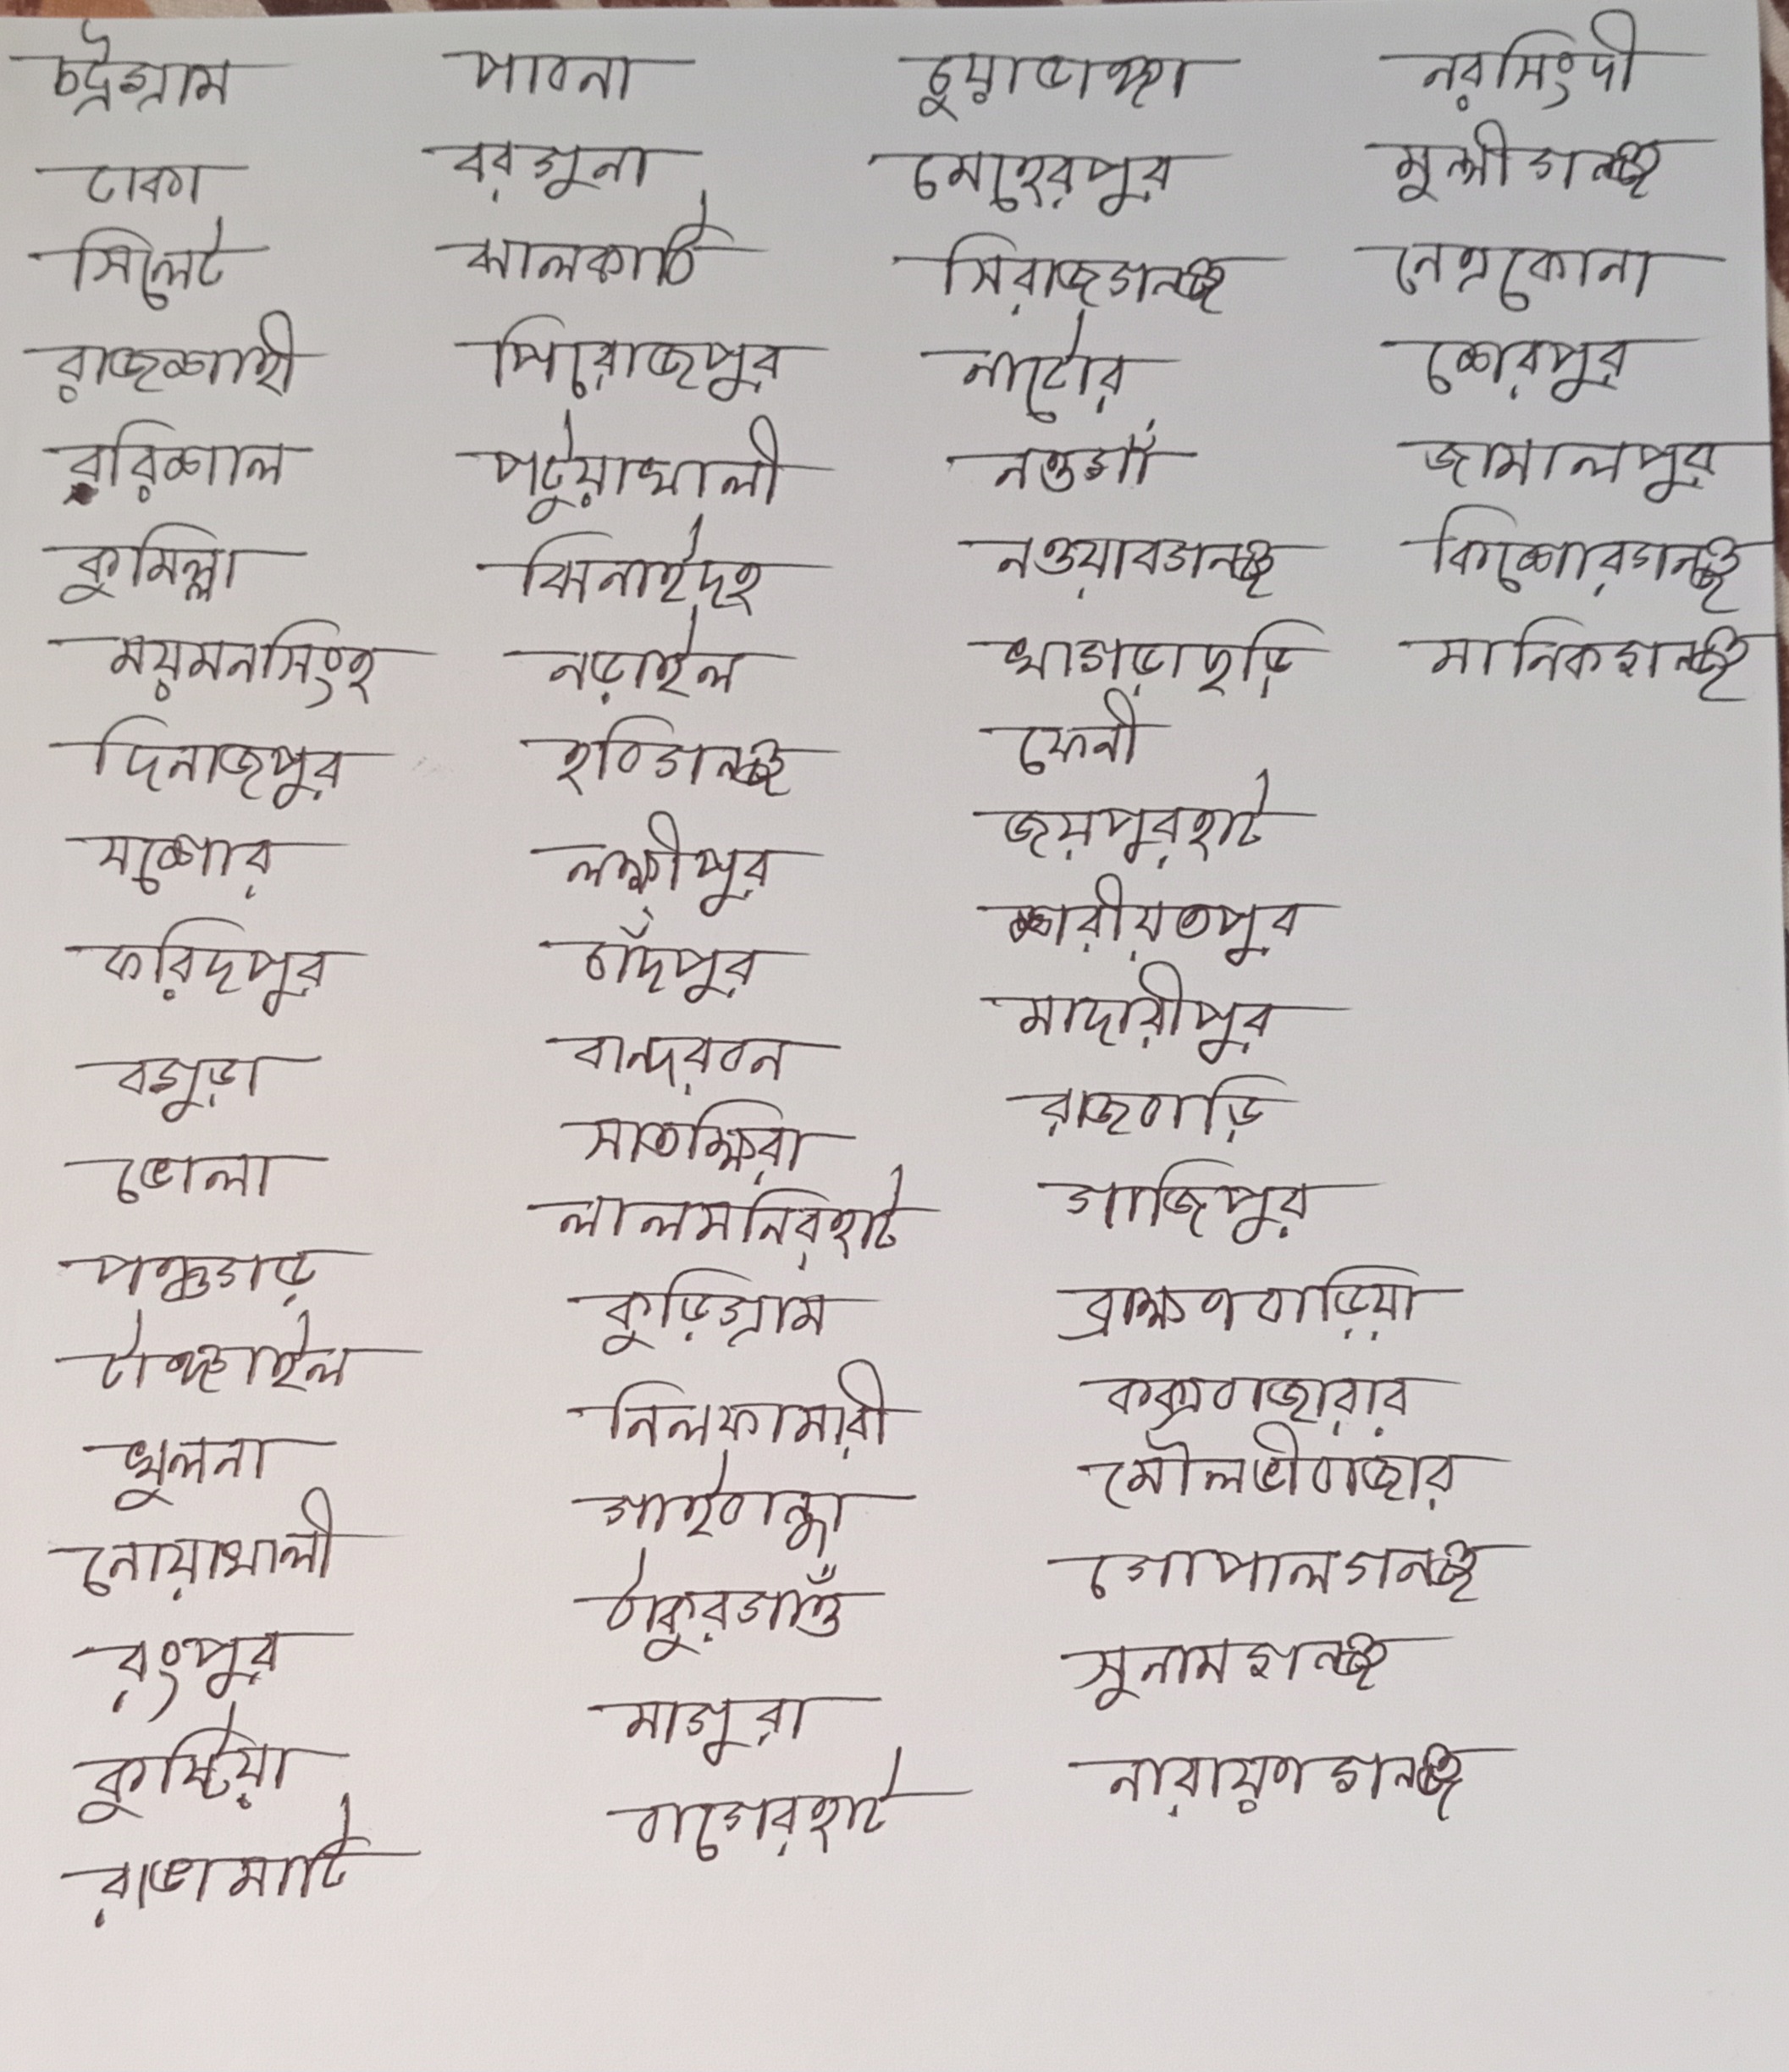 চট্রগ্রাম
ঢাকা
সিলেট
রাজশাহী
বরিশাল
কুমিল্লা
ময়মনসিংহ
দিনাজপুর
যশোর
ফরিদপুর
বগুড়া
ভোলা
পঞ্চগড়
টাঙ্গাইল
খুলনা
নোয়াখালী
রংপুর
কুষ্টিয়া
রাঙামাটি
পাবনা
বরগুনা
ঝালকাঠি
পিরোজপুর
পটুয়াখালী
ঝিনাইদহ
নড়াইল
হবিগনজ্ঞ
লক্ষীপুর
চাঁদপুর
বান্দরবন
সাতক্ষিরা
লালমনিরহাট
কুড়িগ্রাম
নিলফামারী
গাইবান্ধা
ঠাকুরগাওঁ
মাগুরা
বাগেরহাট
চুয়াডাঙ্গা
মেহেরপুর
সিরাজগনজ্ঞ
নাটোর
নওগাঁ
নওয়াবগনজ্ঞ
খাগড়াছড়ি
ফেনী
জয়পুরহাট
শারীয়তপুর
মাদারীপুর
রাজবাড়ি
গাজিপুর
ব্রাক্ষণবাড়িয়া
কক্সবাজারার
মৌলভীবাজার
গোপালগনজ্ঞ
সুনামগনজ্ঞ
নারায়ণগনজ্ঞ
নরসিংদী
মুন্সীগনজ্ঞ
নেত্রকোনা
শেরপুর
জামালপুর
কিশোরগনজ্ঞ
মানিকগনজ্ঞ